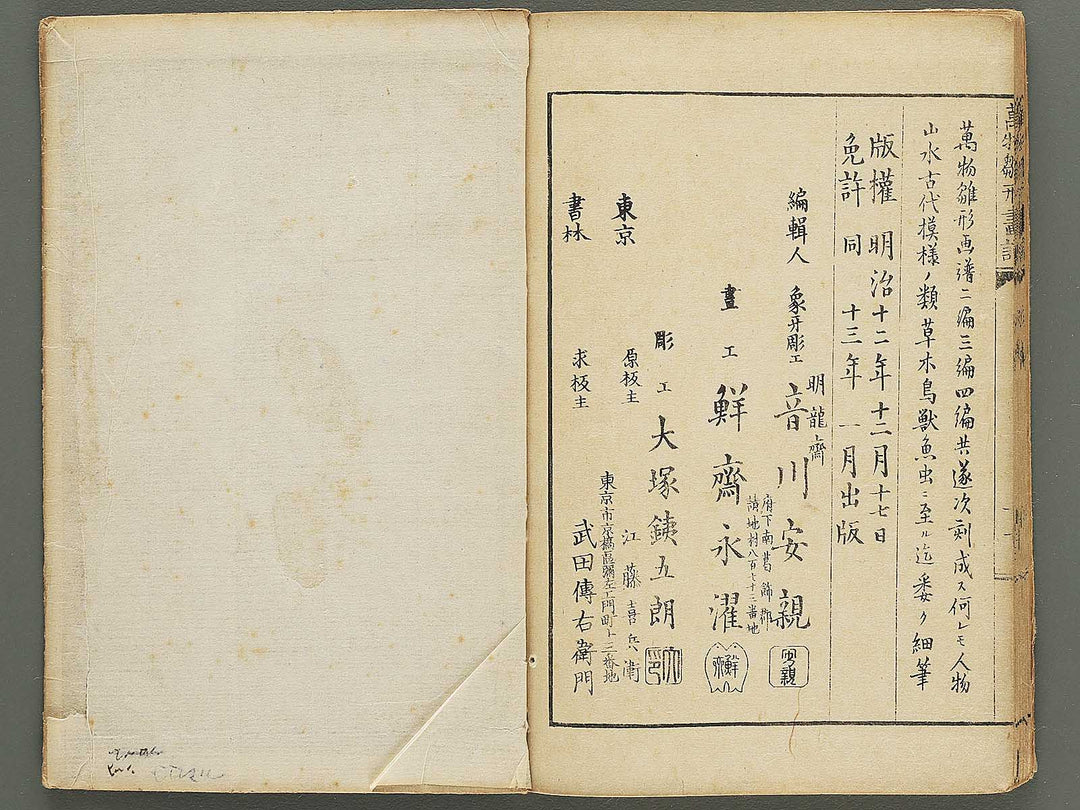 萬物雛形画譜二編三編四編共遂次刻成ス何レモ人物
山水古代模様ノ類草木鳥獣魚虫ニ至ル迄委ク細筆
版權 明治十二年十二月十七日
免許 同 十三年 一月出版
編輯人 象牙彫工 明龍齋 音川安親
府下南葛飾郡
請地村八百七十二番地
畫工 鮮齋永濯
彫工 大塚銕五朗
東京 原板主 江藤喜兵衛
書林 求板主 武田傳右衛門
東京市京橋區彌左エ門町十三番地
萬物雛形畫譜